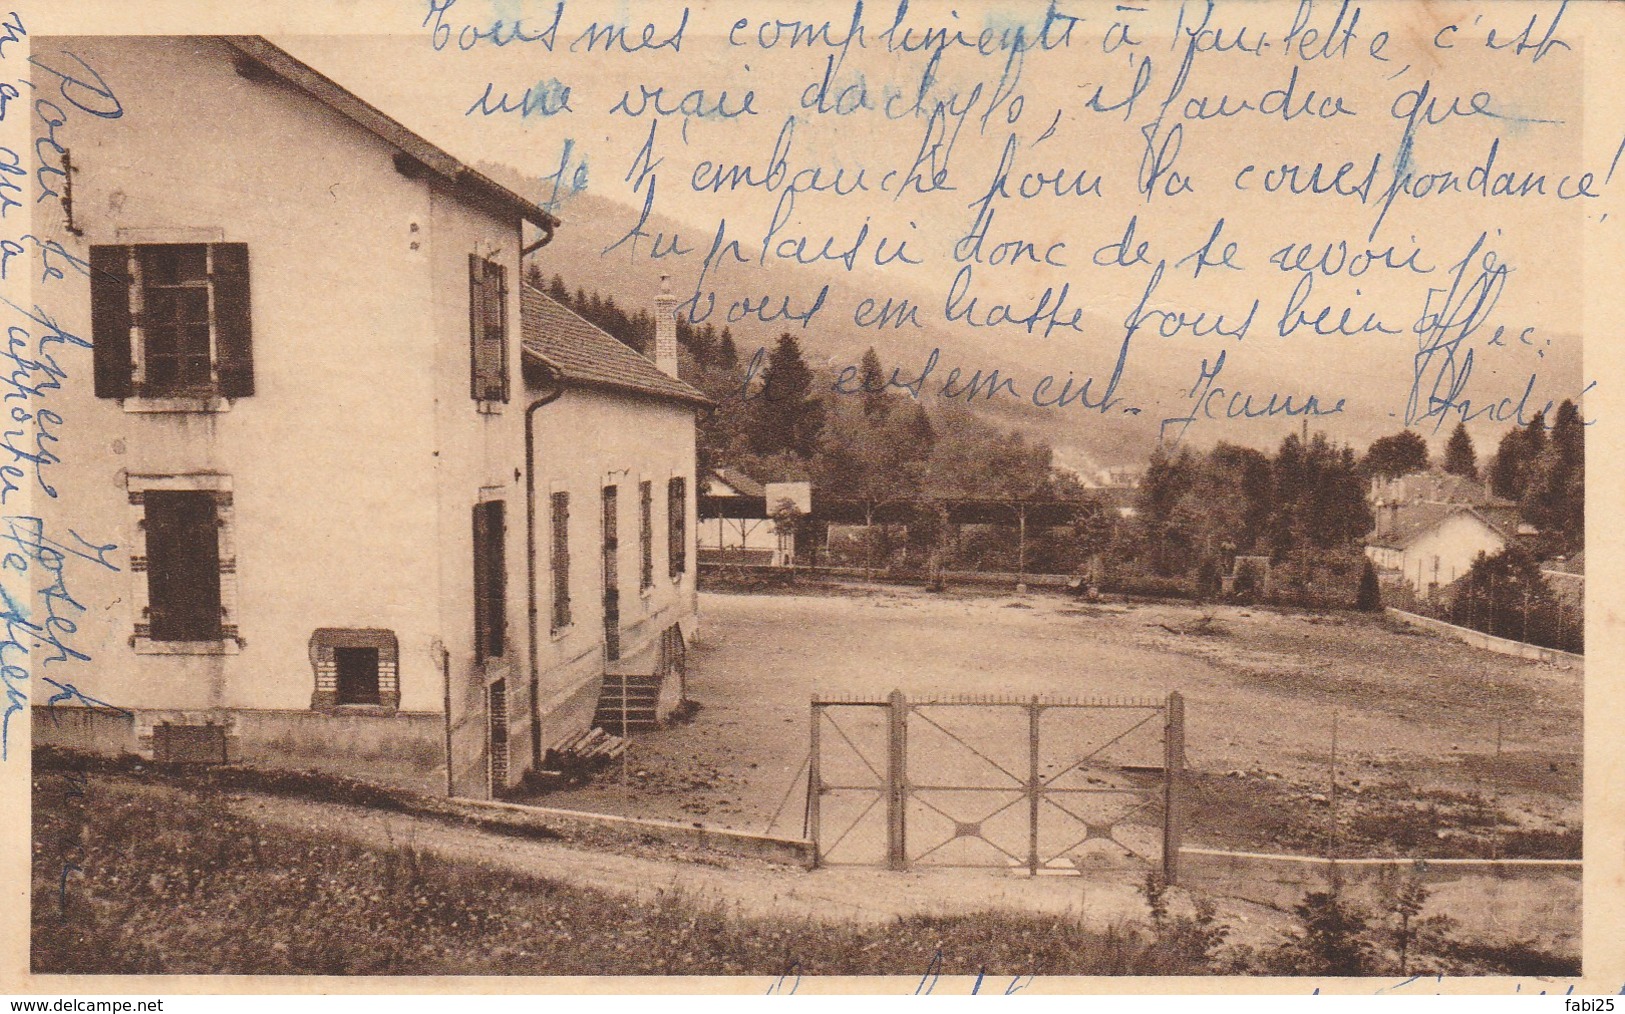 Tous mes compliments à Paulette, c'est
une vraie dachylo, il faudra que
je t'embauche pour la correspondance!
tu plaisir donc de te revoir je
vous embrasse tous bien affec
tieusement. Jeanne André
Pour le pneus Joseph
n'a du a apporter le sien
www.delcampe.net
fabi25